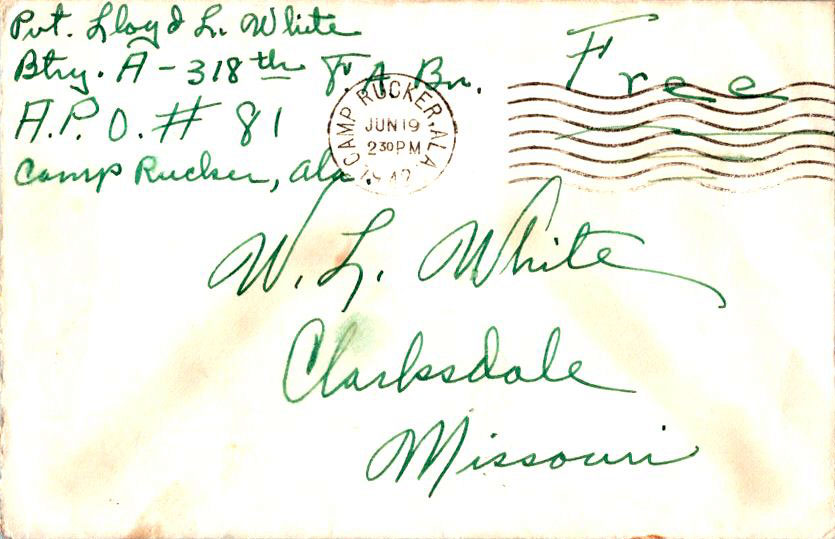 Pvt. Lloyd L. White
Btry. A - 318th F. A. Bn.
A.P.O. # 81
Camp Rucker, Ala.
Free
CAMP RUCKER, ALA
JUN 19
2 30 PM
W. L. White
Clarksdale
Missouri